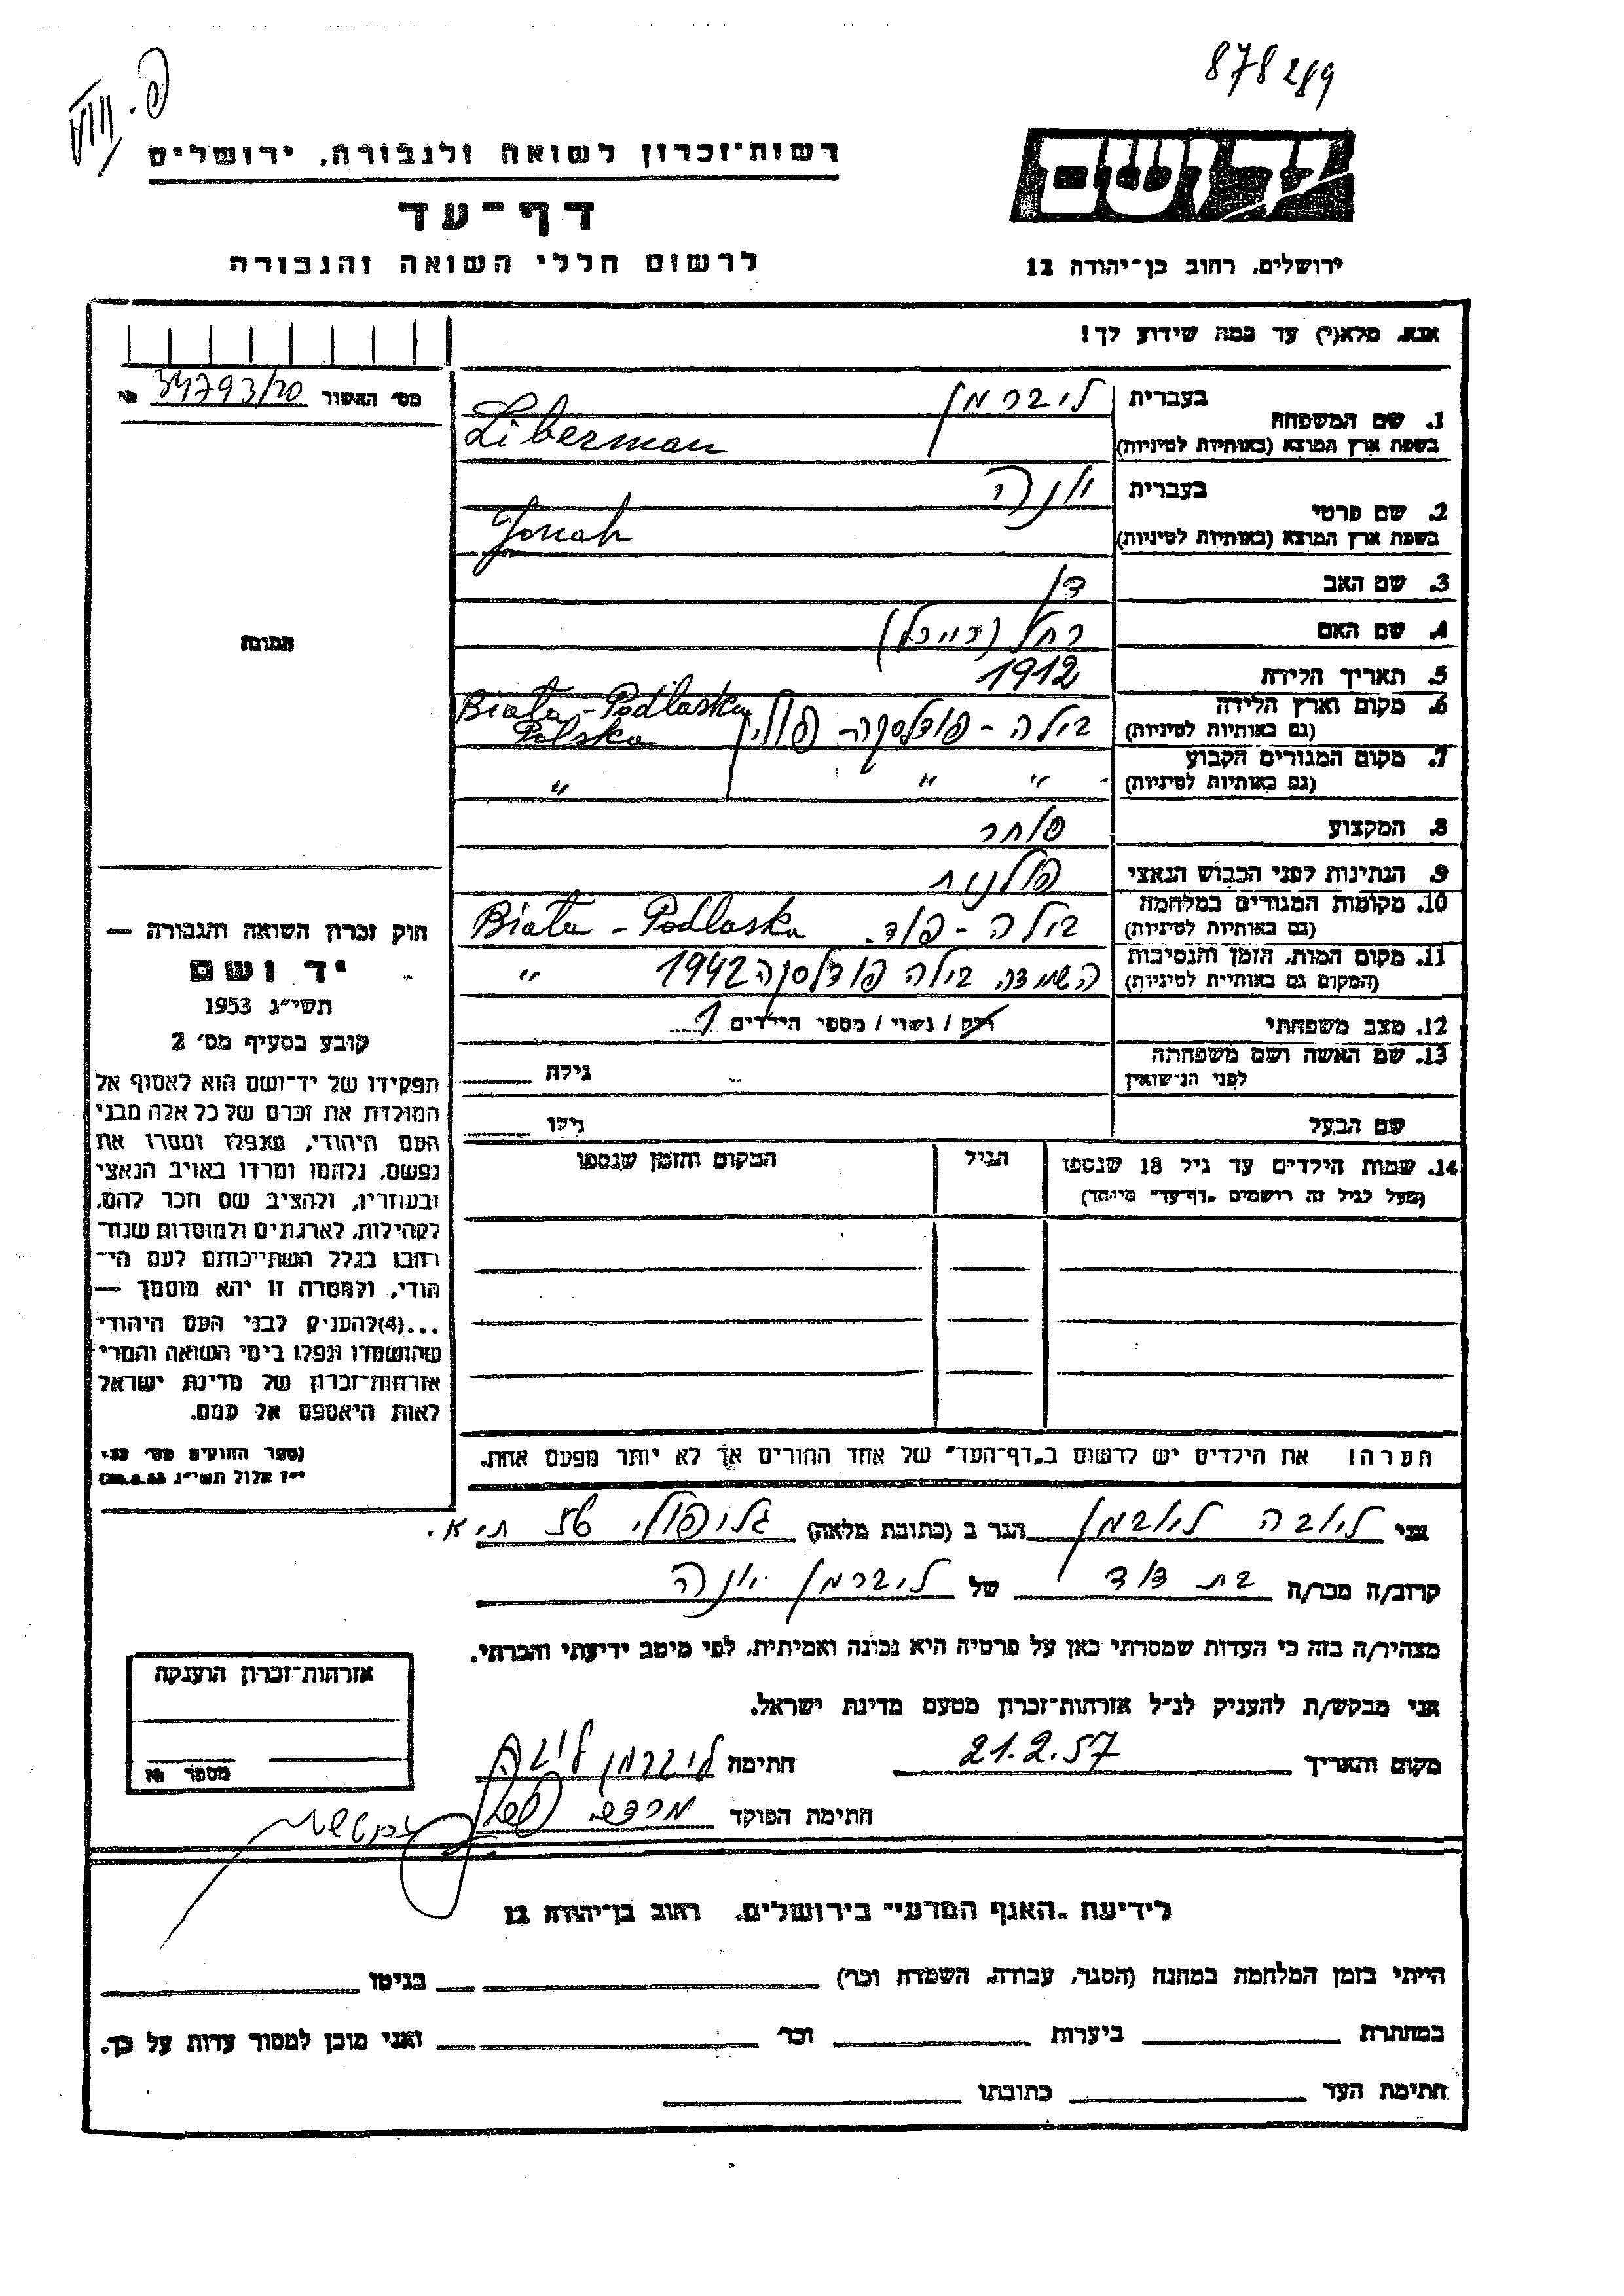 878 289
פ. VIII
יד ושם
רשות־זכרון לשואה ולגבורה, ירושלים
דף־עד
לרשום חללי השואה והגבורה
ירושלים, רחוב בן־יהודה 12
אנא, מלא(י) עד כמה שידוע לך!
מס׳ האשור 34793/20 №
תמונה
בעברית ליברמן
1. שם המשפחה
בשפת ארץ המוצא (באותיות לטיניות) Liberman
בעברית יונה
2. שם פרטי
בשפת ארץ המוצא (באותיות לטיניות) Jonah
3. שם האב
4. שם האם רחל
5. תאריך הלידה 1912
6. מקום וארץ הלידה בילה - פודלסקה - פולין Biała-Podlaska
(גם באותיות לטיניות) Polska
7. מקום המגורים הקבוע
(גם באותיות לטיניות) " " "
8. המקצוע סוחר
9. הנתינות לפני הכבוש הנאצי פולנית
10. מקומות המגורים במלחמה בילה - פוד. Biała-Podlaska
(גם באותיות לטיניות)
11. מקום המות, הזמן והנסיבות השמדה בילה פודלסקה 1942 "
(המקום גם באותיות לטיניות)
12. מצב משפחתי רוק / נשוי / מספר הילדים 1
13. שם האשה ושם משפחתה גילה
לפני הנישואין
שם הבעל גילו
14. שמות הילדים עד גיל 18 שנספו הגיל המקום והזמן שנספו
(מעל לגיל זה רושמים „דף־עד" מיוחד)
חוק זכרון השואה והגבורה —
יד ושם
תשי״ג 1953
קובע בסעיף מס׳ 2
תפקידו של יד־ושם הוא לאסוף אל
המולדת את זכרם של כל אלה מבני
העם היהודי, שנפלו ומסרו את
נפשם, נלחמו ומרדו באויב הנאצי
ובעוזריו, ולהציב שם וזכר להם,
לקהילות, לארגונים ולמוסדות שנח־
רבו בגלל השתייכותם לעם הי־
הודי, ולמטרה זו יהא מוסמך —
...(4)להעניק לבני העם היהודי
שהושמדו ונפלו בימי השואה והמרי
אזרחות־זכרון של מדינת ישראל
לאות היאספם אל עמם.
(ספר החוקים מס׳ 132.
י״ז אלול תשי״ג 28.8.53)
הערה! את הילדים יש לרשום ב„דף־העד" של אחד ההורים אך לא יותר מפעם אחת.
אני ליובה ליברמן הגר ב (כתובת מלאה) גליפולי ת״א.
קרוב/ה מכר/ה בת דוד של ליברמן יונה
מצהיר/ה בזה כי העדות שמסרתי כאן על פרטיה היא נכונה ואמיתית, לפי מיטב ידיעתי והכרתי.
אני מבקש/ת להעניק לנ״ל אזרחות־זכרון מטעם מדינת ישראל.
מקום ותאריך 21.2.57 חתימה ליברמן ליובה
חתימת הפוקד
אזרחות־זכרון הוענקה
מספר №
לידיעת „האגף המדעי" בירושלים, רחוב בן־יהודה 12
הייתי בזמן המלחמה במחנה (הסגר, עבודה, השמדה וכר) בגיטו
במחתרת ביערות וכר ואני מוכן למסור עדות על כך.
חתימת העד כתובתו